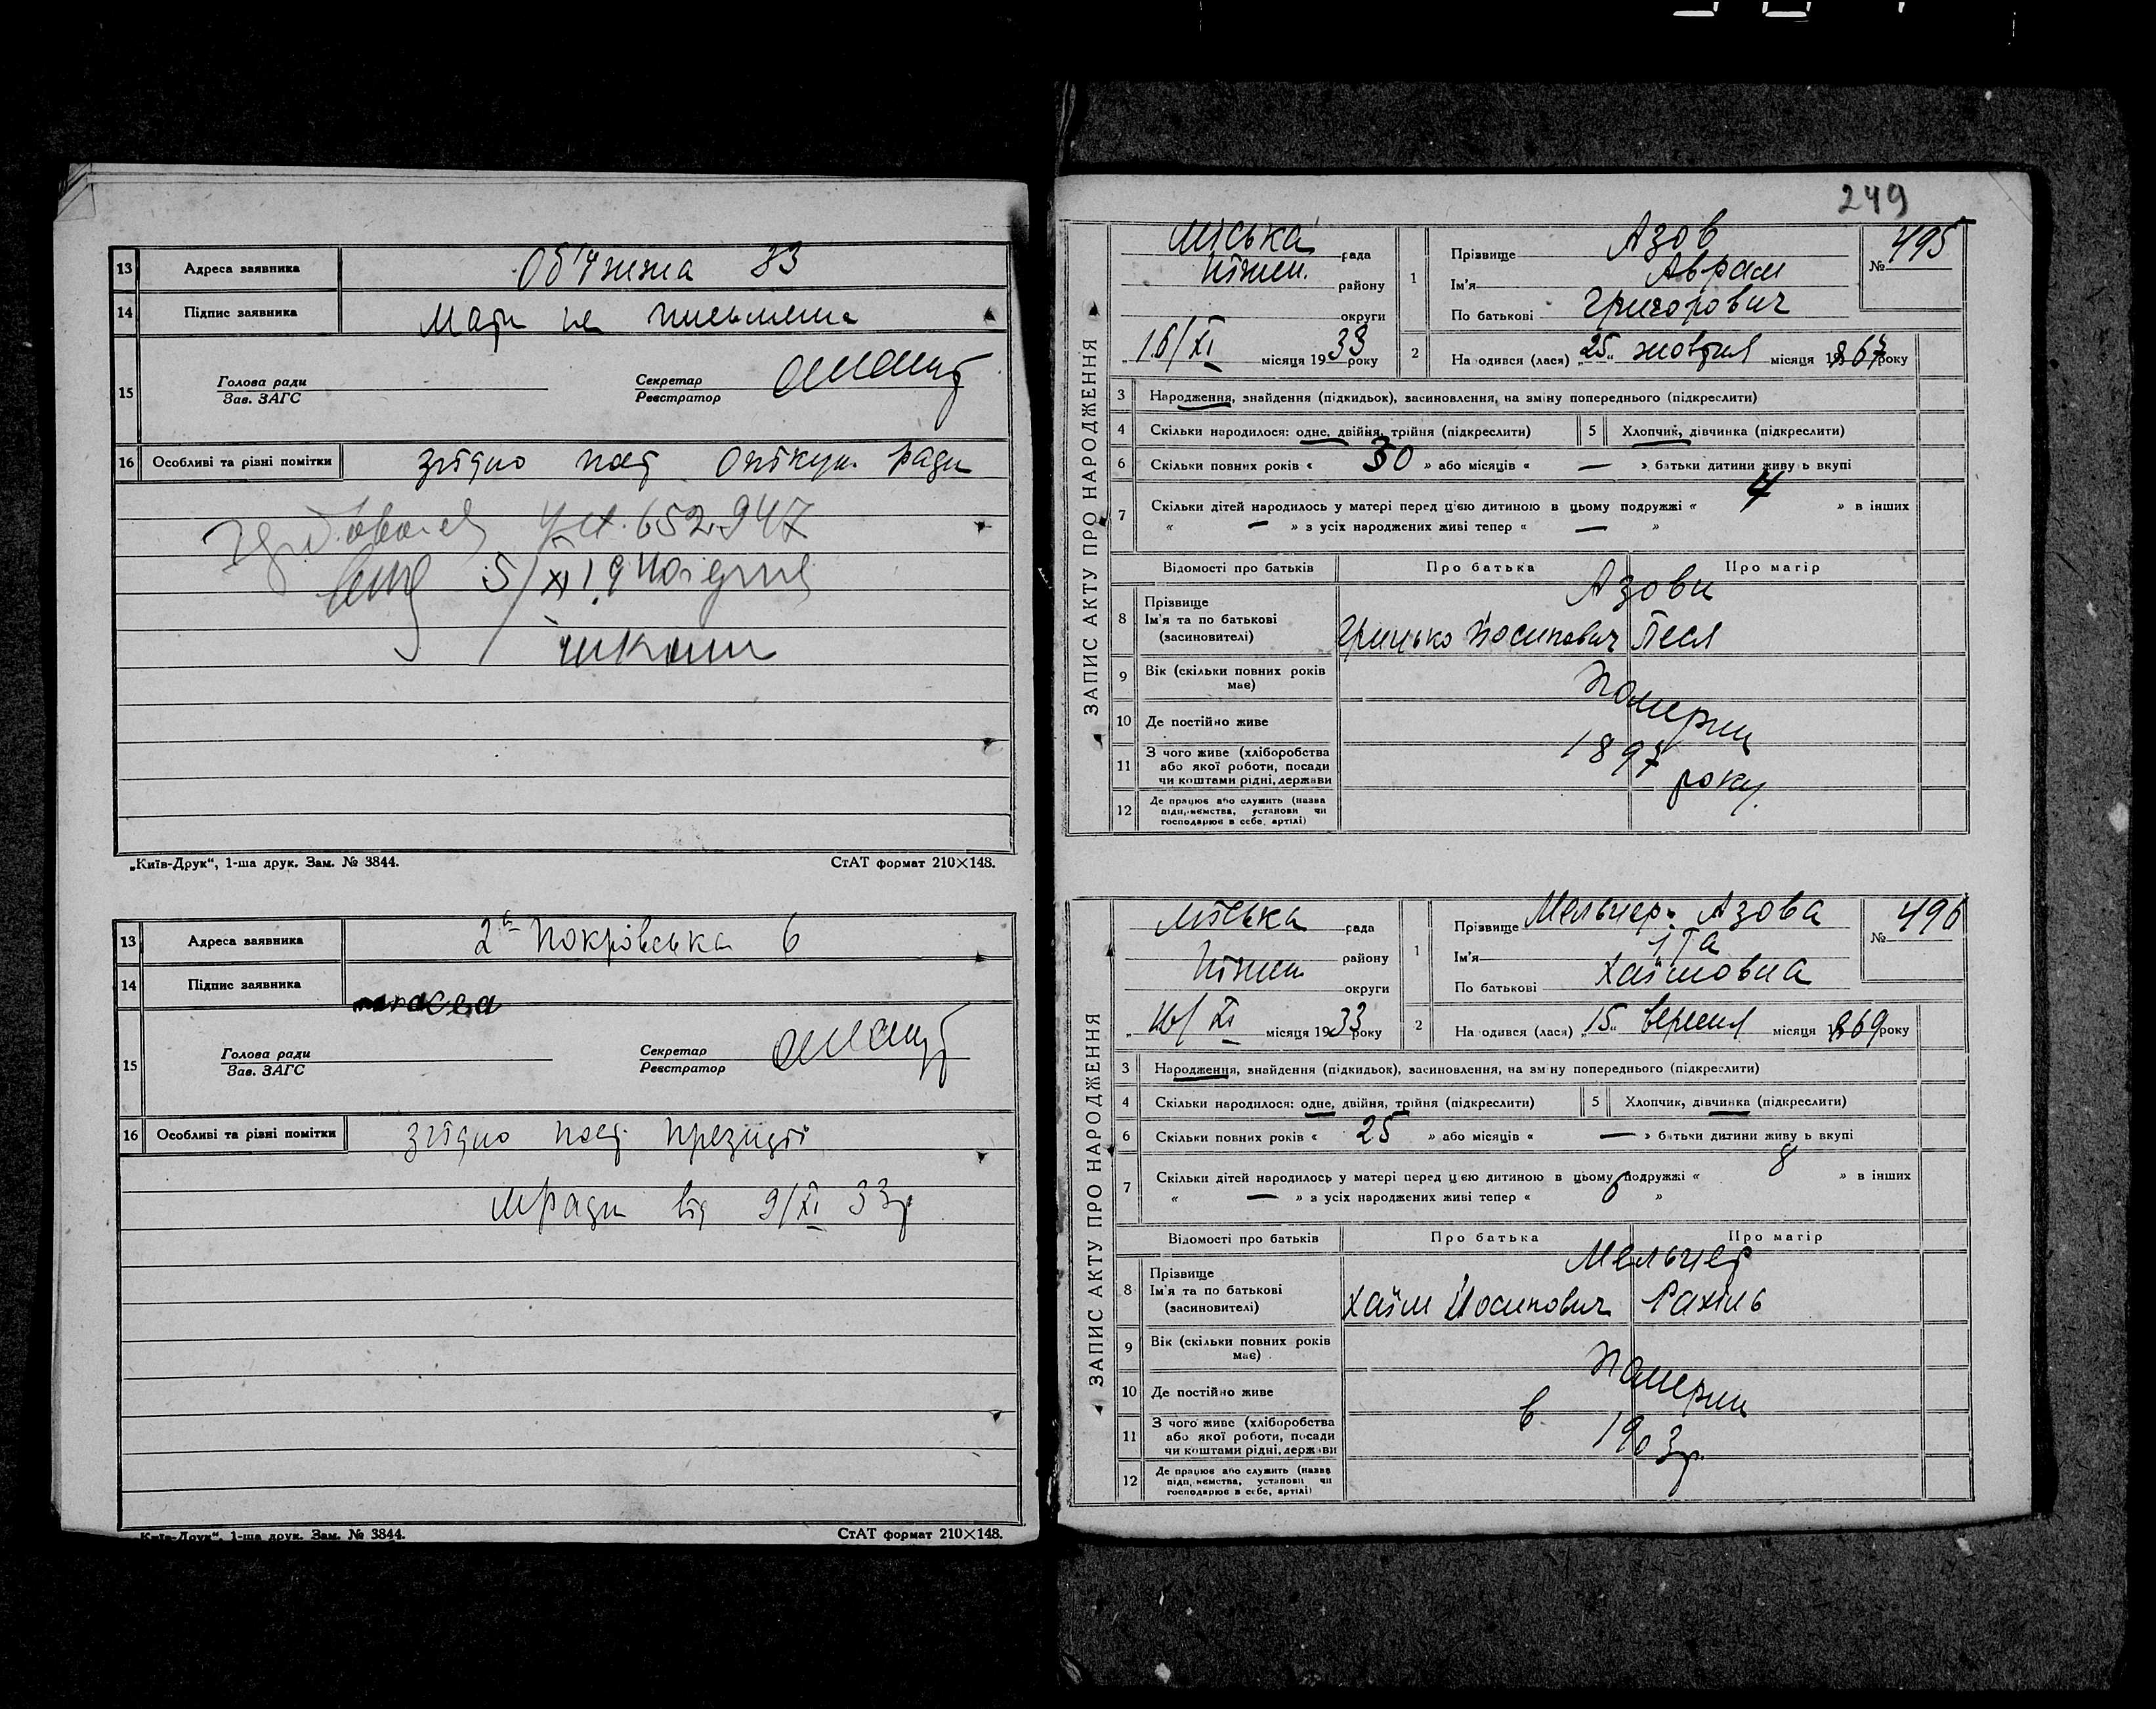 13 Адреса заявника Об'їжжа 33
14 Підпис заявника Мати не письменна
15 Голова ради
Зав. ЗАГС
Секретар
Реєстратор
16 Особливі та різні помітки згідно пост Опікун. ради
652947
5/XI
„Київ-Друк“, 1-ша друк. Зам. № 3844. СтАТ формат 210×148.
13 Адреса заявника 2а Покровська 6
14 Підпис заявника
15 Голова ради
Зав. ЗАГС
Секретар
Реєстратор
16 Особливі та різні помітки згідно пост президії
мради від 9/XI 33р
„Київ-Друк“, 1-ша друк. Зам. № 3844. СтАТ формат 210×148.
249
ЗАПИС АКТУ ПРО НАРОДЖЕННЯ
Міська рада
Ніжин. району
округи
„16/XI місяця 1933 року
1 Прізвище Азов
Ім'я Аврам
По батькові Григорович
№ 495
2 Народився (лася) „25„ жовтня місяця 1867 року
3 Народження, знайдення (підкидьок), засиновлення, на зміну попереднього (підкреслити)
4 Скільки народилося: одне, двійня, трійня (підкреслити) 5 Хлопчик, дівчинка (підкреслити)
6 Скільки повних років « 30 » або місяців « — » батьки дитини живуть вкупі
7 Скільки дітей народилось у матері перед цією дитиною в цьому подружжі « 4 » в інших
« — » з усіх народжених живі тепер « — »
Відомості про батьків Про батька Про матір
8 Прізвище Азови
Ім'я та по батькові
(засиновителі) Грицько Йосипович Песя
9 Вік (скільки повних років має)
Померли
10 Де постійно живе
1897 року
11 З чого живе (хліборобства
або якої роботи, посади
чи коштами рідні, держави
12 Де працює або служить (назва
підприємства, установи чи
господарює в себе, артілі)
ЗАПИС АКТУ ПРО НАРОДЖЕННЯ
Міська рада
Ніжин району
округи
„16/XI місяця 1933 року
1 Прізвище Мельнер. Азова
Ім'я Іта
По батькові Хаїмовна
№ 496
2 Народився (лася) „15„ вересня місяця 1869 року
3 Народження, знайдення (підкидьок), засиновлення, на зміну попереднього (підкреслити)
4 Скільки народилося: одне, двійня, трійня (підкреслити) 5 Хлопчик, дівчинка (підкреслити)
6 Скільки повних років « 25 » або місяців « — » батьки дитини живуть вкупі
7 Скільки дітей народилось у матері перед цією дитиною в цьому подружжі « 8 » в інших
« — » з усіх народжених живі тепер « 6 »
Відомості про батьків Про батька Про матір
8 Прізвище Мельнер
Ім'я та по батькові
(засиновителі) Хаїм Йосипович Рахіль
9 Вік (скільки повних років має)
Померли
10 Де постійно живе
в 1903р.
11 З чого живе (хліборобства
або якої роботи, посади
чи коштами рідні, держави
12 Де працює або служить (назва
підприємства, установи чи
господарює в себе, артілі)